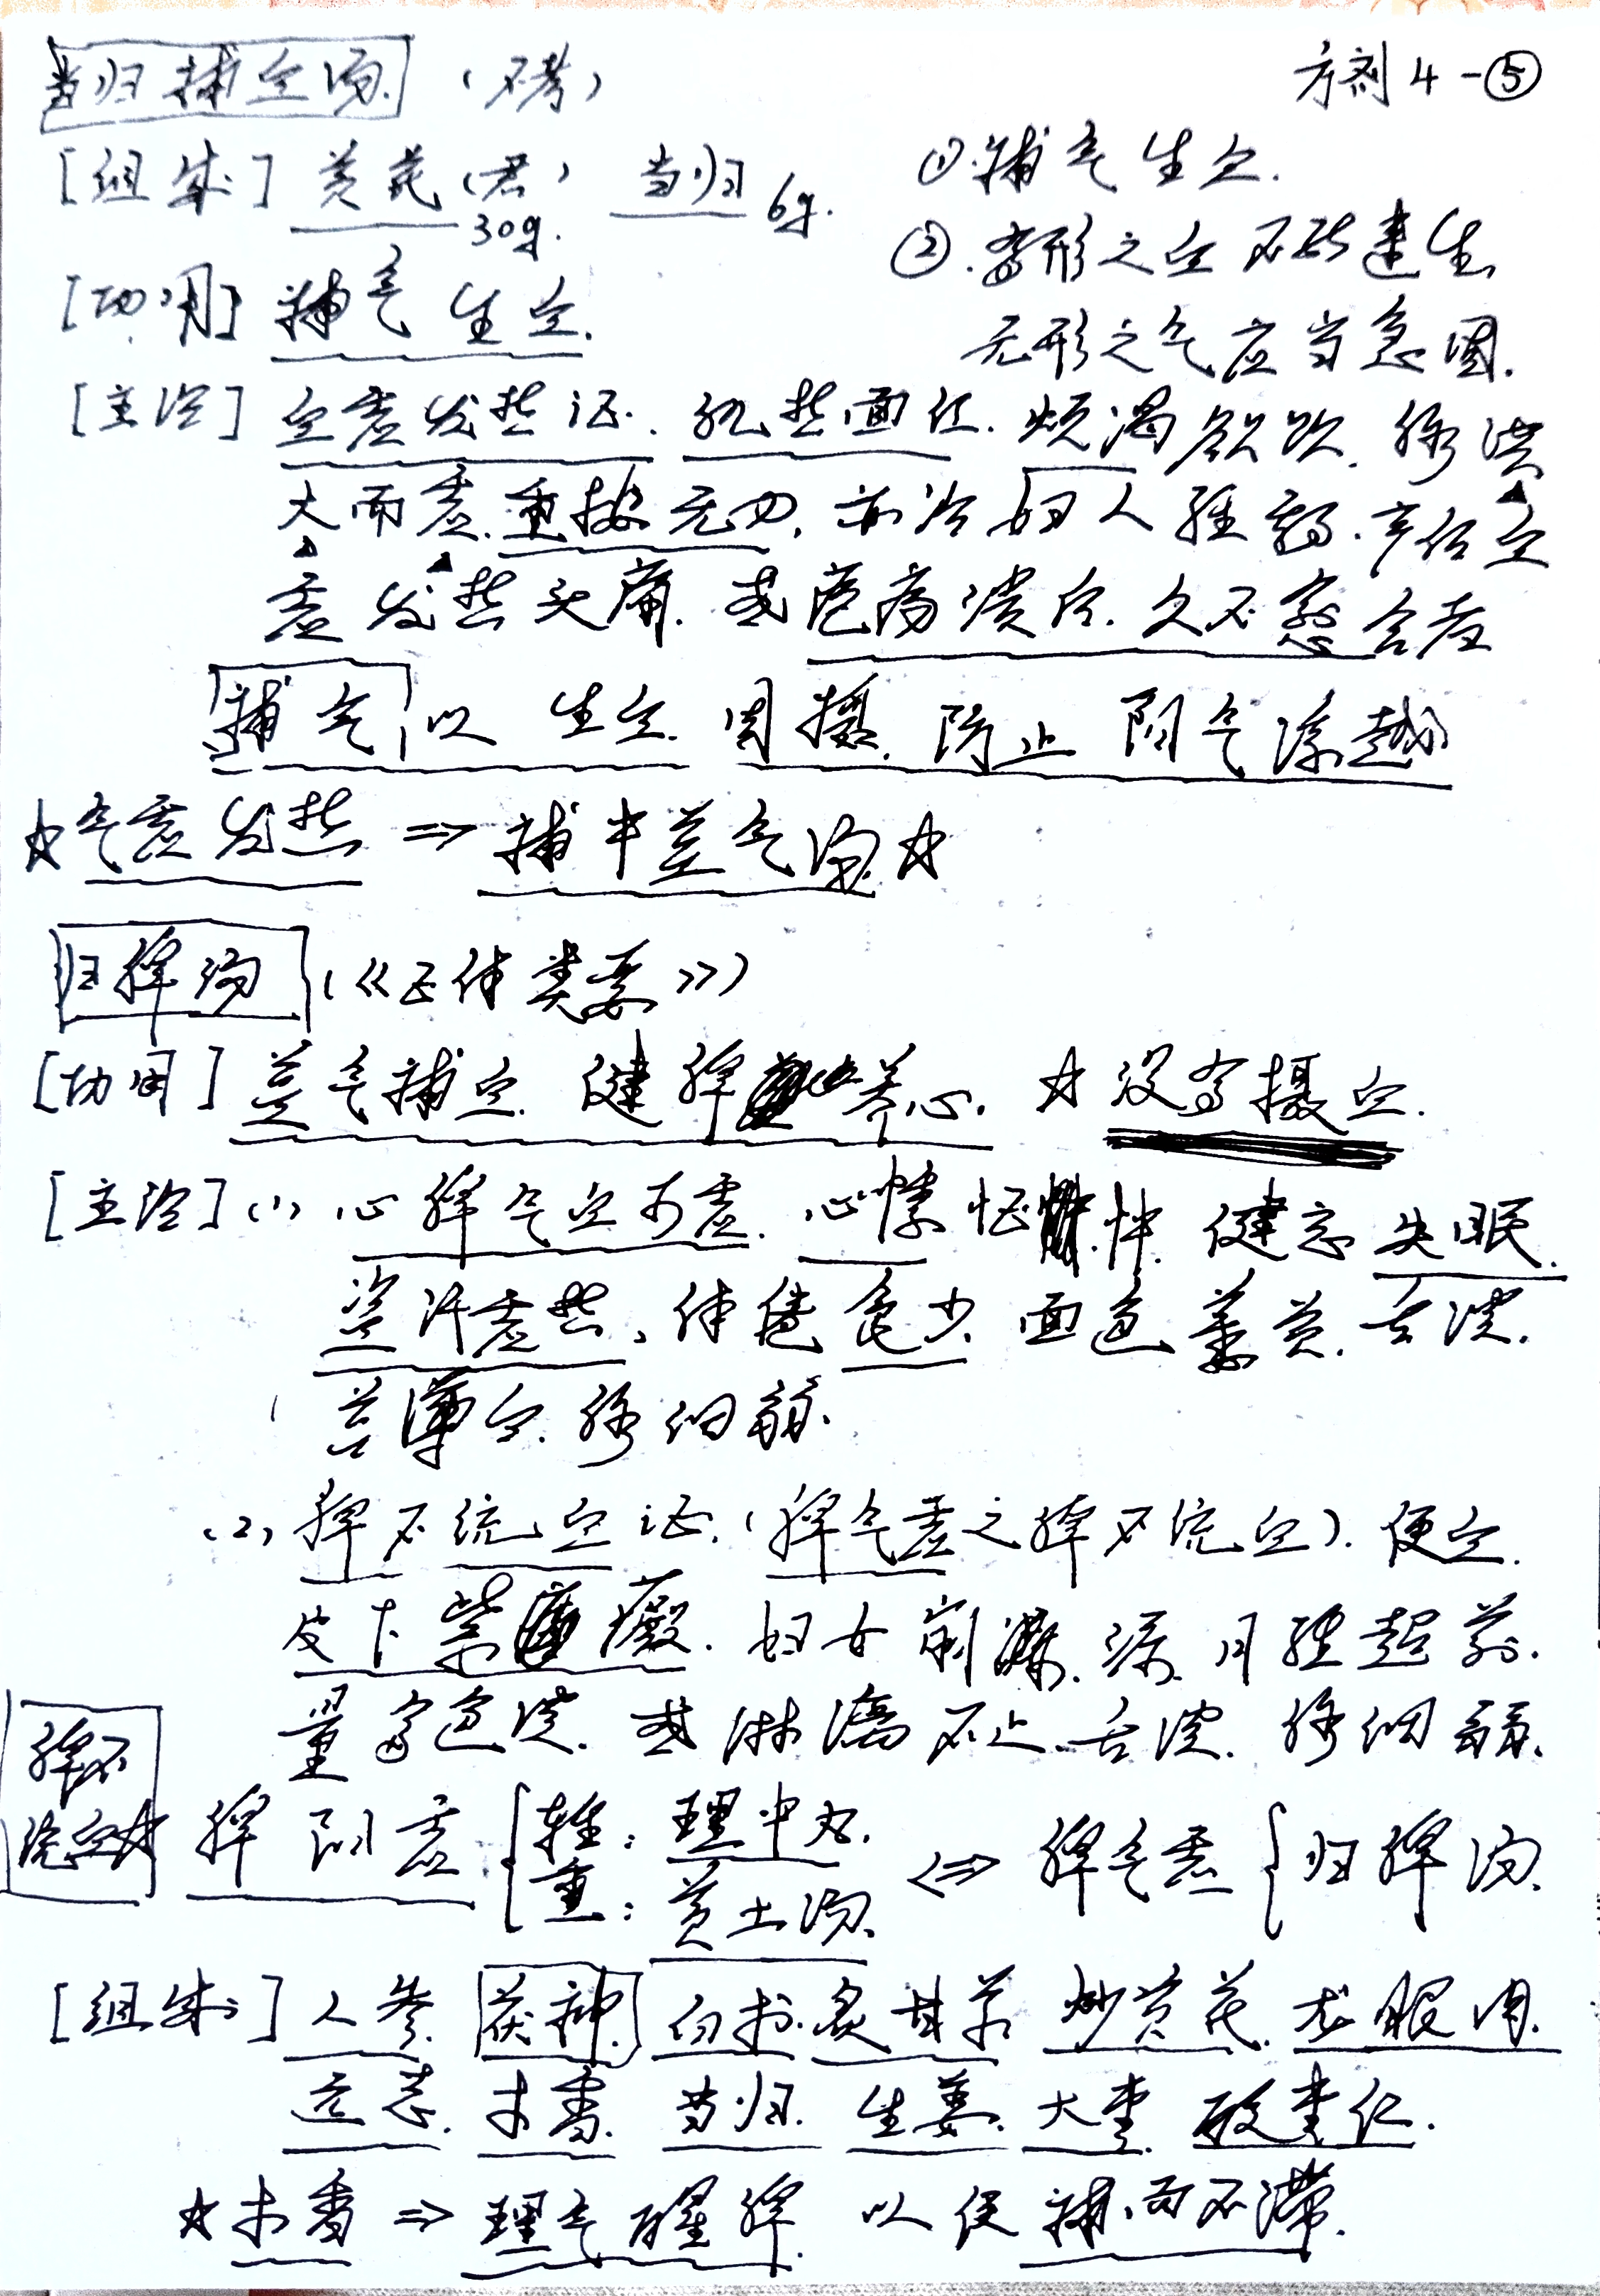 当归补血汤 (不考)
方剂4-⑤
[组成] 黄芪(君) 30g. 当归 6g.
① 补气生血.
②. 有形之血不能速生
无形之气应当急固.
[功用] 补气生血.
[主治] 血虚发热证. 肌热面红. 烦渴欲饮. 脉洪
大而虚. 重按无力. 亦治妇人经期. 产后血
虚发热头痛. 或疮疡溃后. 久不愈合者
补气以生血. 固摄. 防止阳气浮越
☆气虚发热 ⇒ 补中益气汤☆
归脾汤 (《正体类要》)
[功用] 益气补血. 健脾养心. ☆没有摄血.
[主治] (1) 心脾气血两虚. 心悸怔忡. 健忘失眠.
盗汗虚热、体倦食少. 面色萎黄. 舌淡.
苔薄白. 脉细弱.
(2) 脾不统血证. (脾气虚之脾不统血). 便血.
皮下紫癜. 妇女崩漏. 月经超前.
量多色淡. 或淋漓不止. 舌淡. 脉细弱.
脾不
统血☆
脾阳虚 { 轻: 理中丸.
重: 黄土汤.
⇔ 脾气虚 { 归脾汤.
[组成] 人参. 茯神. 白术. 炙甘草 炒黄芪. 龙眼肉.
远志. 木香. 当归. 生姜. 大枣. 酸枣仁.
☆木香 ⇒ 理气醒脾. 以使补而不滞.